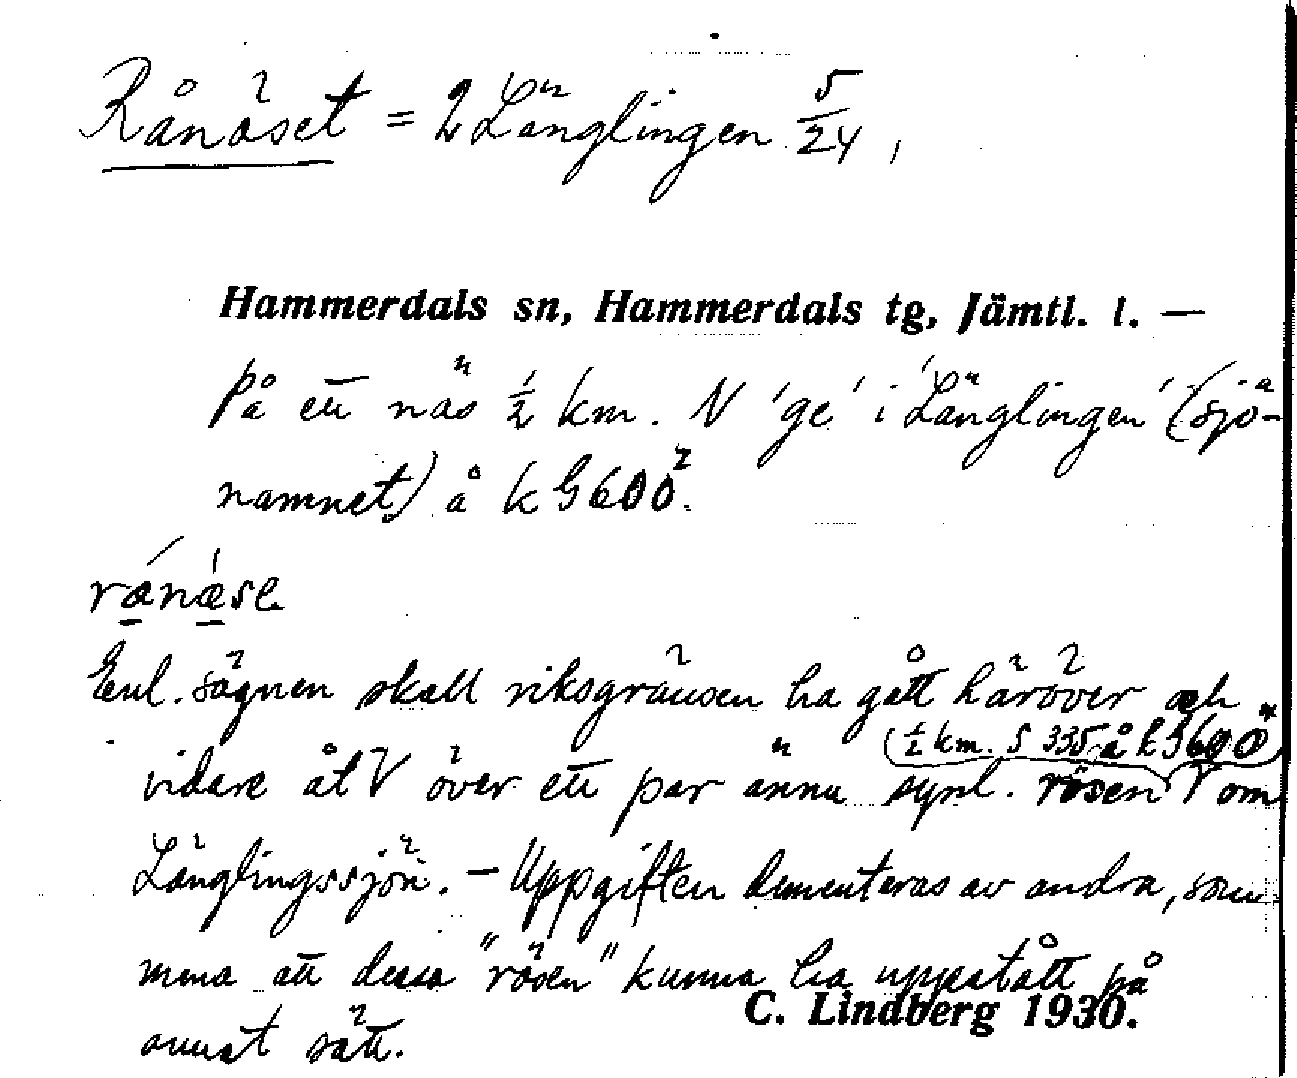 Rånäset = 2 Länglingen 5/24,
Hammerdals sn, Hammerdals tg, Jämtl. l. —
På ett näs ½ km. N 'ge' i 'Länglingen' (sjö-
namnet) å k G600².
rånæse
Enl. sägnen skall riksgränsen ha gått häröver och
(½ km. S 335 å k G600")
vidare åt V över ett par ännu synl. rösen V om
Länglingssjön. – Uppgiften dementeras av andra, som
mena att dessa "rösen" kunna ha uppstått på
annat sätt.
C. Lindberg 1930.